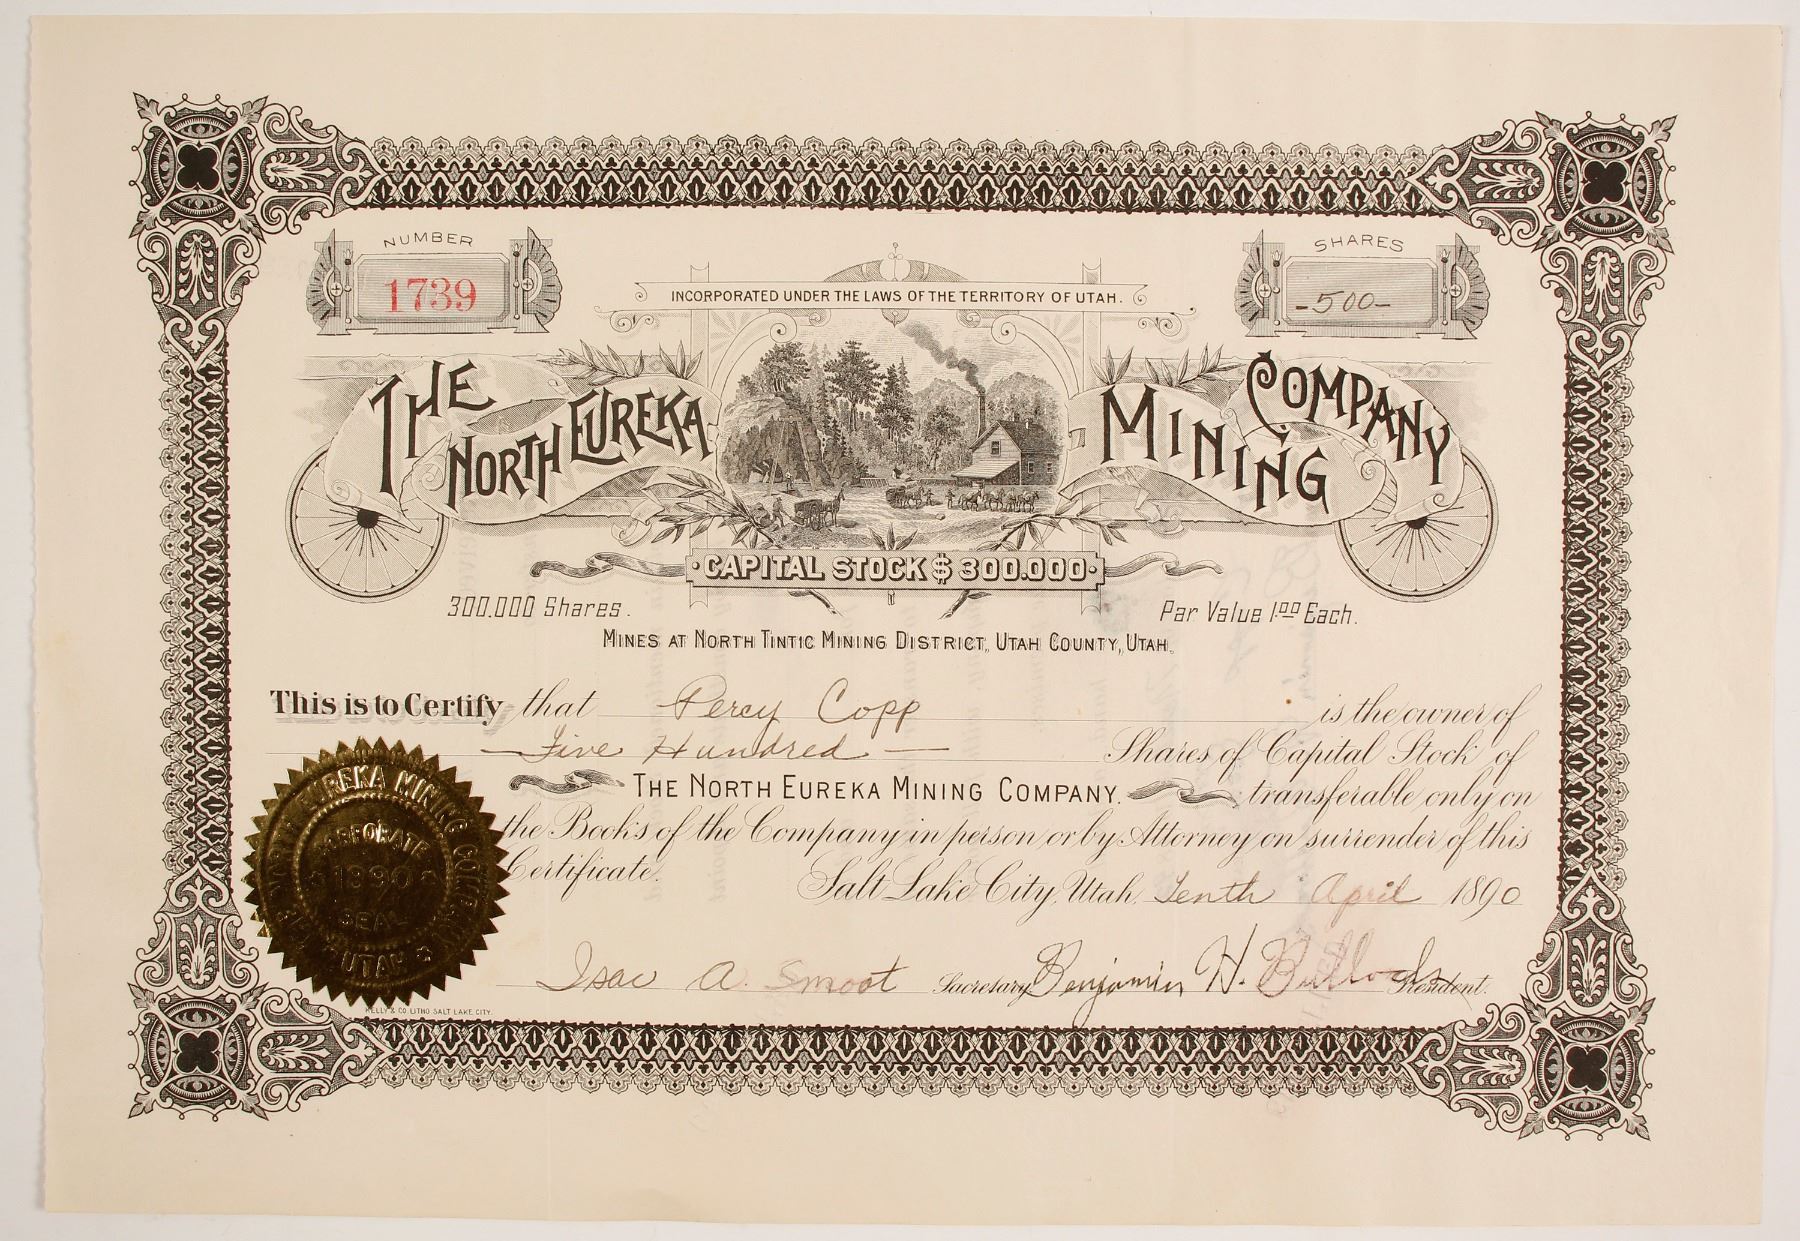 NUMBER
1739
SHARES
-500-
INCORPORATED UNDER THE LAWS OF THE TERRITORY OF UTAH.
THE NORTH EUREKA MINING COMPANY
CAPITAL STOCK $ 300.000
300.000 Shares.
Par Value 1.00 Each.
MINES AT NORTH TINTIC MINING DISTRICT, UTAH COUNTY, UTAH.
This is to Certify that Percy Copp is the owner of
- Five Hundred - Shares of Capital Stock of
THE NORTH EUREKA MINING COMPANY. transferable only on
the Books of the Company in person or by Attorney on surrender of this
Certificate. Salt Lake City, Utah, Tenth April 1890
Isac A. Smoot Sacretary. Benjamin H. Bullock President.
NORTH EUREKA MINING COMPANY
CORPORATE
1890
SEAL
UTAH
KELLY & CO. LITHO. SALT LAKE CITY.